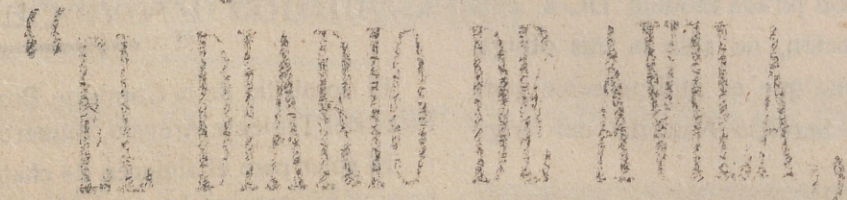 “EL DIARIO DE AVILA„